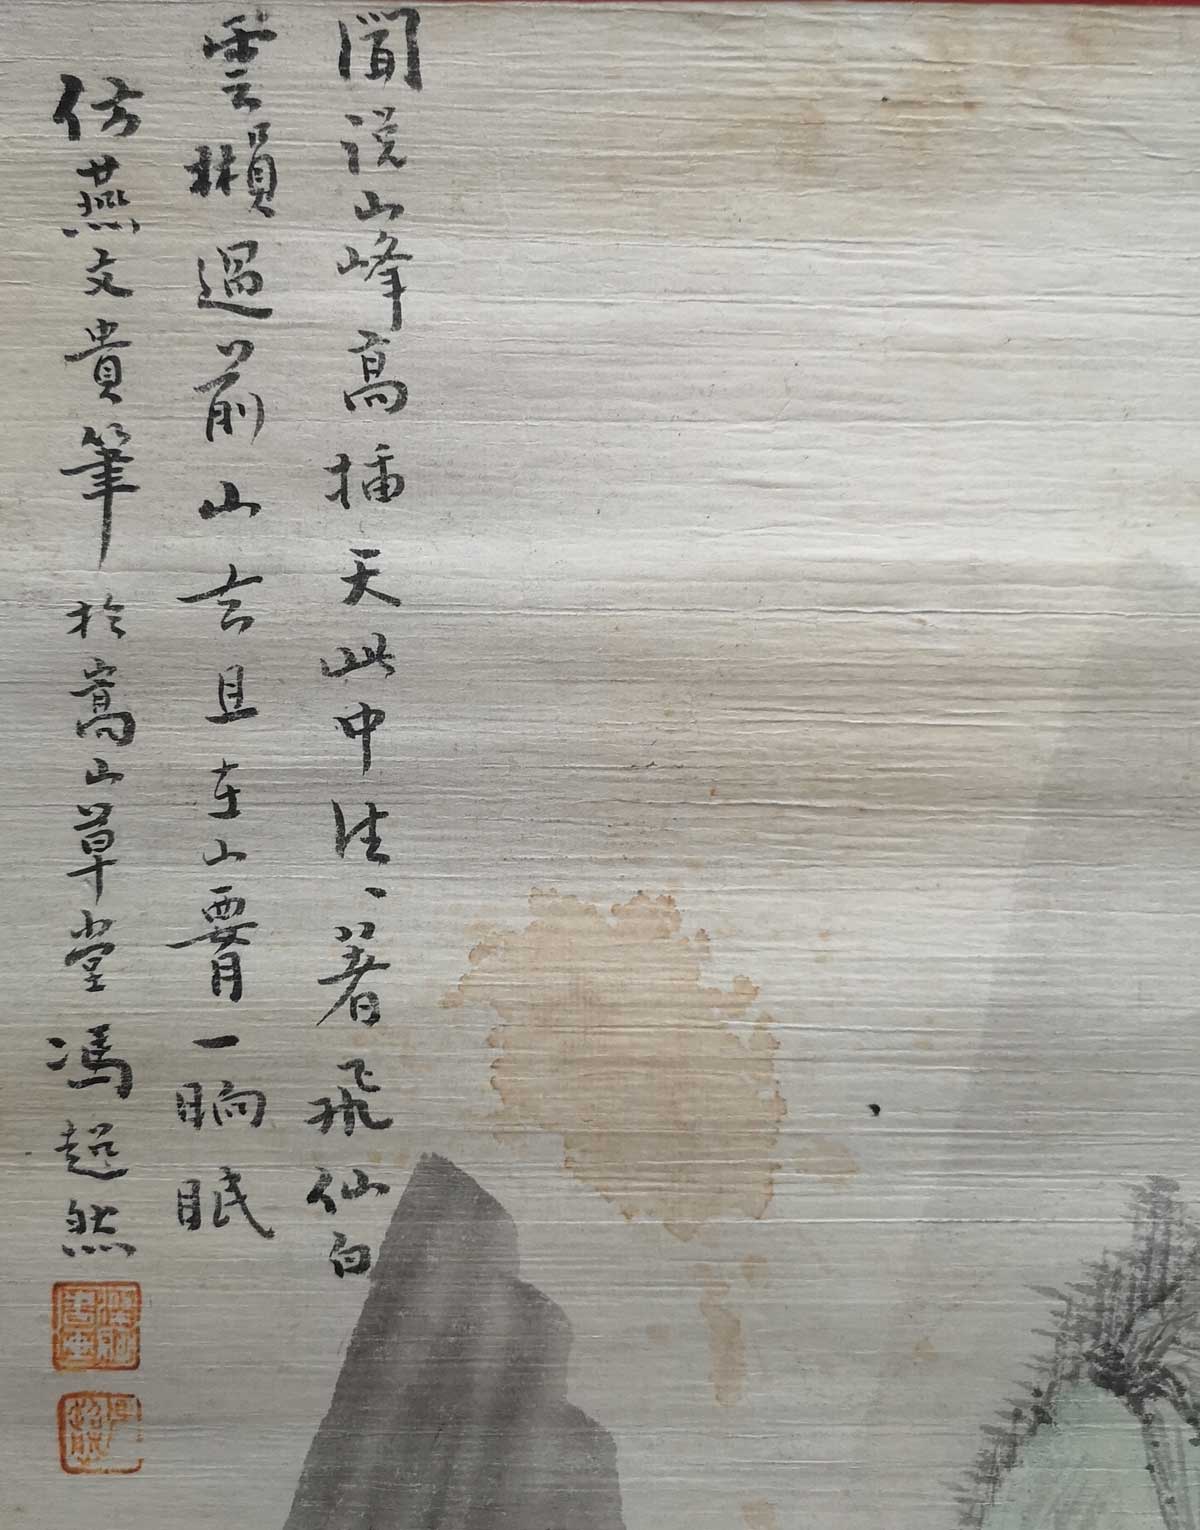 聞說山峰高插天此中往、著飛仙白
雲嬾過前山去且在山腰一晌眠
仿燕文貴筆於嵩山草堂馮超然